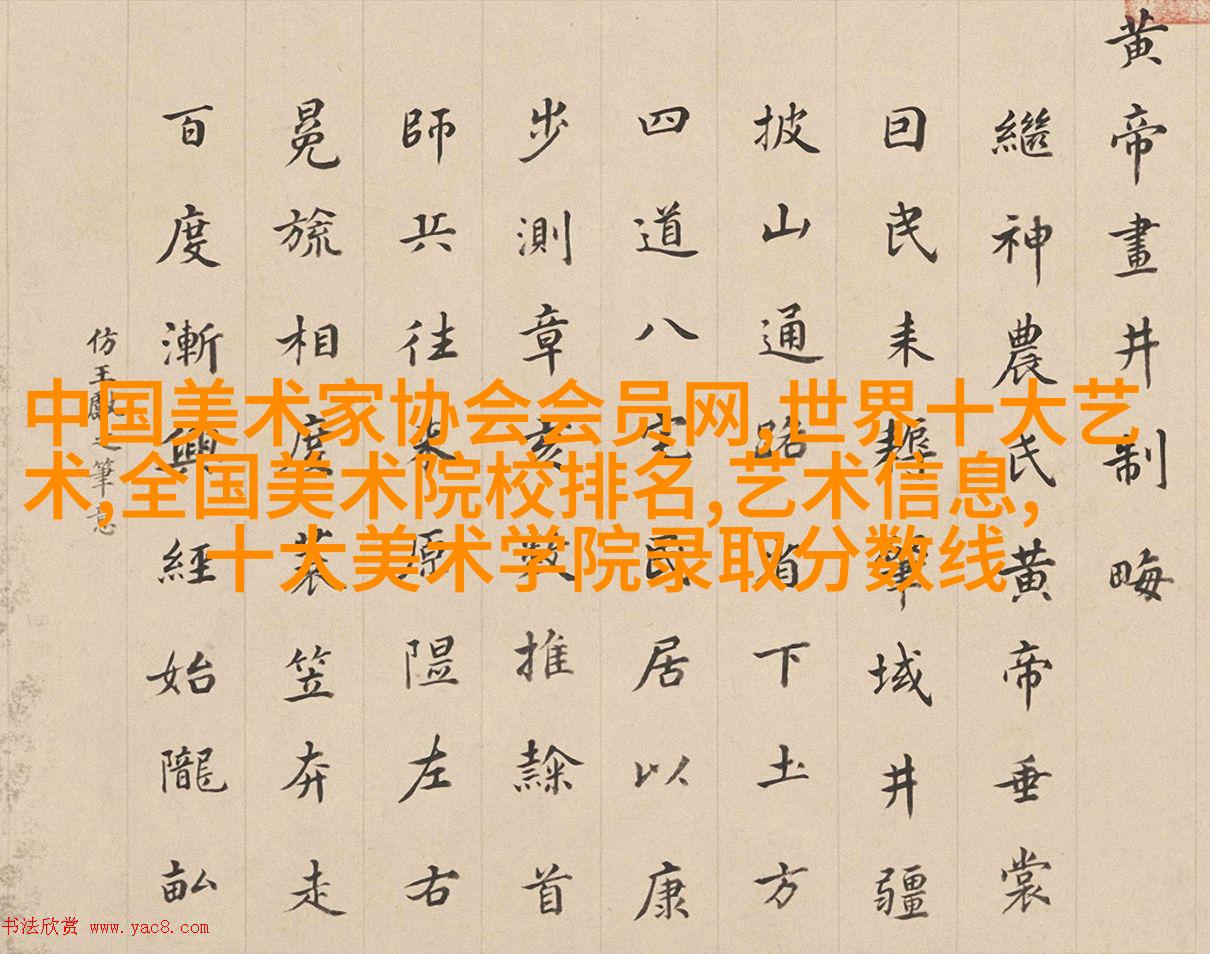 黄帝畫井制畮
繼神農氏黄帝垂裳
囙民耒肇域井疆
披山通路首下土方
四道八宅民居以康
步測章亥數推隸首
師兵往来原隰左右
冕旒相度蓑笠奔走
百度漸興經始隴畝
仿王獻之筆意
中国美术家协会会员网,世界十大艺
术,全国美术院校排名,艺术信息,
十大美术学院录取分数线
书法欣赏 www.yac8.com